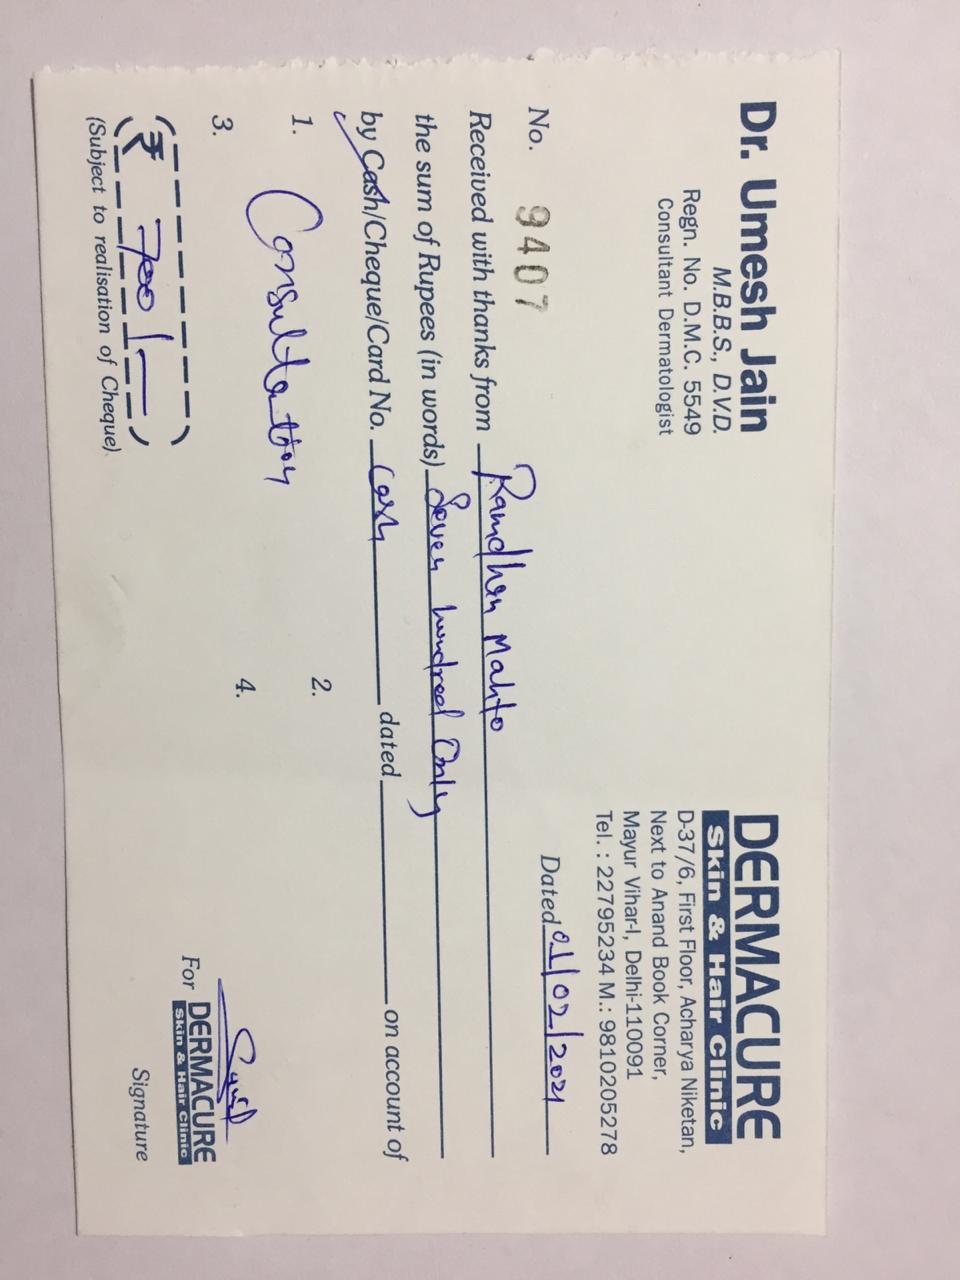 Dr. Umesh Jain
M.B.B.S., D.V.D.
Regn. No. D.M.C. 5549
Consultant Dermatologist
DERMACURE
Skin & Hair Clinic
D-37/6, First Floor, Acharya Niketan,
Next to Anand Book Corner,
Mayur Vihar-I, Delhi-110091
Tel. : 22795234 M.: 9810205278
No. 9407
Dated 01/02/2021
Received with thanks from Ramdhan Mahto
the sum of Rupees (in words) Seven hundred Only
by Cash/Cheque/Card No. Cash dated on account of
1. Consultation 2.
3. 4.
₹ 700/-
(Subject to realisation of Cheque)
For DERMACURE
Skin & Hair Clinic
Signature